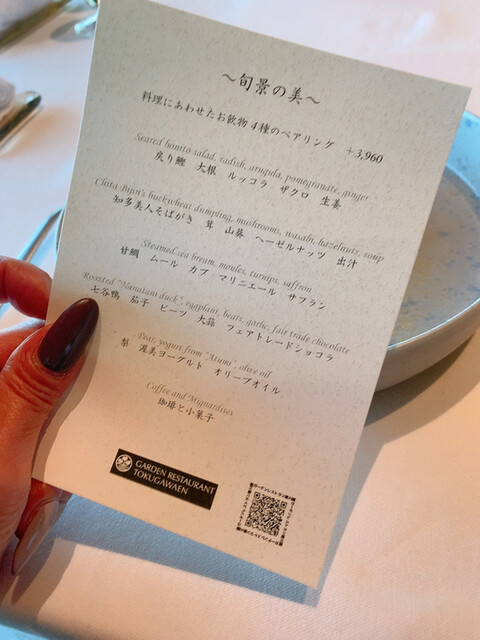 ～旬景の美～
料理にあわせたお飲物 4種のペアリング +3,960
Seared bonito salad, radish, arugula, pomegranate, ginger
戻り鰹 大根 ルッコラ ザクロ 生姜
Chita Bijin's buckwheat dumpling, mushrooms, wasabi, hazelnuts, soup
知多美人そばがき 茸 山葵 ヘーゼルナッツ 出汁
Steamed sea bream, moules, turnips, saffron
甘鯛 ムール カブ マリニエール サフラン
Roasted "Nanatani duck", eggplant, beats, garlic, fair trade chocolate
七谷鴨 茄子 ビーツ 大蒜 フェアトレードショコラ
Pear, yogurt from "Atumi", olive oil
梨 渥美ヨーグルト オリーブオイル
Coffee and Mignardises
珈琲と小菓子
GARDEN RESTAURANT
TOKUGAWAEN